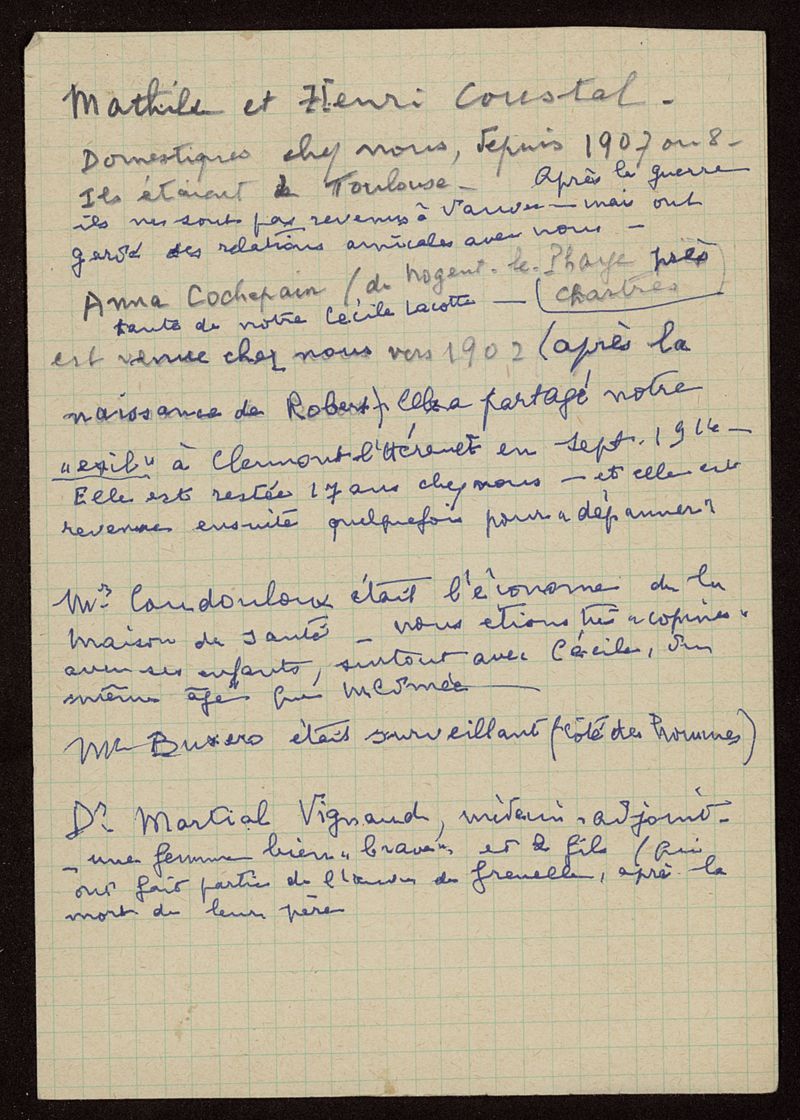 Mathilde et Henri Coustal -
Domestiques chez nous, depuis 1907 ou 8 -
Ils étaient de Toulouse - Après la guerre
ils ne sont pas revenus à Vanves - mais ont
gardé des relations amicales avec nous -
Anna Cochepain (de Nogent-le-Phaye près
Chartres
tante de notre Cécile Lacotte -
est venue chez nous vers 1902 (après la
naissance de Robert) Elle a partagé notre
"exil" à Clermont l'Hérault en Sept. 1914 -
Elle est restée 17 ans chez nous - et elle est
revenue ensuite quelquefois pour "dépanner"
Mr Coudouloux était l'économe de la
maison de santé - nous étions très "copines"
avec ses enfants, surtout avec Cécile, du
même âge que
Mr Buxero était surveillant (Côté des Hommes)
Dr Martial Vignaud, médecin-adjoint -
- une femme bien "brave", et 2 fils (qui
ont fait partie de l'œuvre de Grenelle, après la
mort de leur père